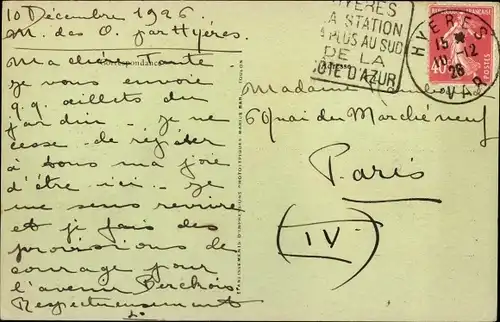 10 Décembre 1926.
M. des O. par Hyères.
Correspondance
Ma chère tante
je vous envoie
q.q. œillets du
jardin. je ne
cesse de répéter
à tous ma joie
d'être ici. Je
me sens revivre
et je fais des
provisions de
courage pour
l'avenir
Respectueusement
HYERES
LA STATION
PLUS AU SUD
DE LA
COTE D'AZUR
HYERES
15
10-12
26
VAR
40c
POSTES
Adresse
Madame
6 Quai du Marché neuf
Paris
(IV)